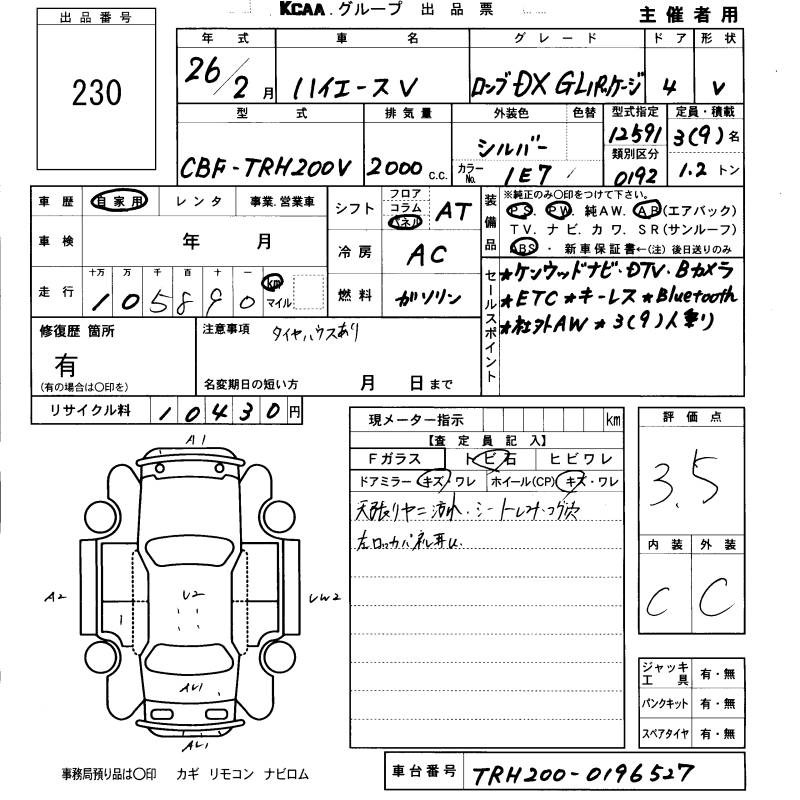 KCAA.グループ 出品票 主催者用
出品番号
230
年式 車名 グレード ドア 形状
26/2月 ハイエースV ロングDX GLパッケージ 4 V
型式 排気量 外装色 色替 型式指定 定員・積載
CBF-TRH200V 2000 C.C. シルバー 12591 3(9)名
カラーNo. 1E7 類別区分 0192 1.2トン
車歴 自家用 レンタ 事業.営業車
車検 年 月
走行 十万 万 千 百 十 一 km マイル
105890
シフト フロア コラム パネル AT
冷房 AC
燃料 ガソリン
装備品 ※純正のみ〇印をつけて下さい。
PS. PW. 純AW. AB(エアバック)
TV. ナビ. カワ. SR(サンルーフ)
ABS・新車保証書←(注)後日送りのみ
セールスポイント
★ケンウッドナビ・DTV・Bカメラ
★ETC ★キーレス ★Bluetooth
★社外AW ★3(9)人乗り
修復歴 箇所
有
(有の場合は〇印を)
注意事項 タイヤハウスあり
名変期日の短い方 月 日まで
リサイクル料 10430円
現メーター指示 km
【査定員記入】
Fガラス トビ石 ヒビワレ
ドアミラー キズ・ワレ ホイール(CP) キズ・ワレ
天張りヤニ汚れ・シート
左ロッカパネル
評価点
3.5
内装 外装
C C
A1
A2
U2
UW2
AU1
AU1
ジャッキ 工具 有・無
パンクキット 有・無
スペアタイヤ 有・無
事務局預り品は〇印 カギ リモコン ナビロム
車台番号 TRH200-0196527